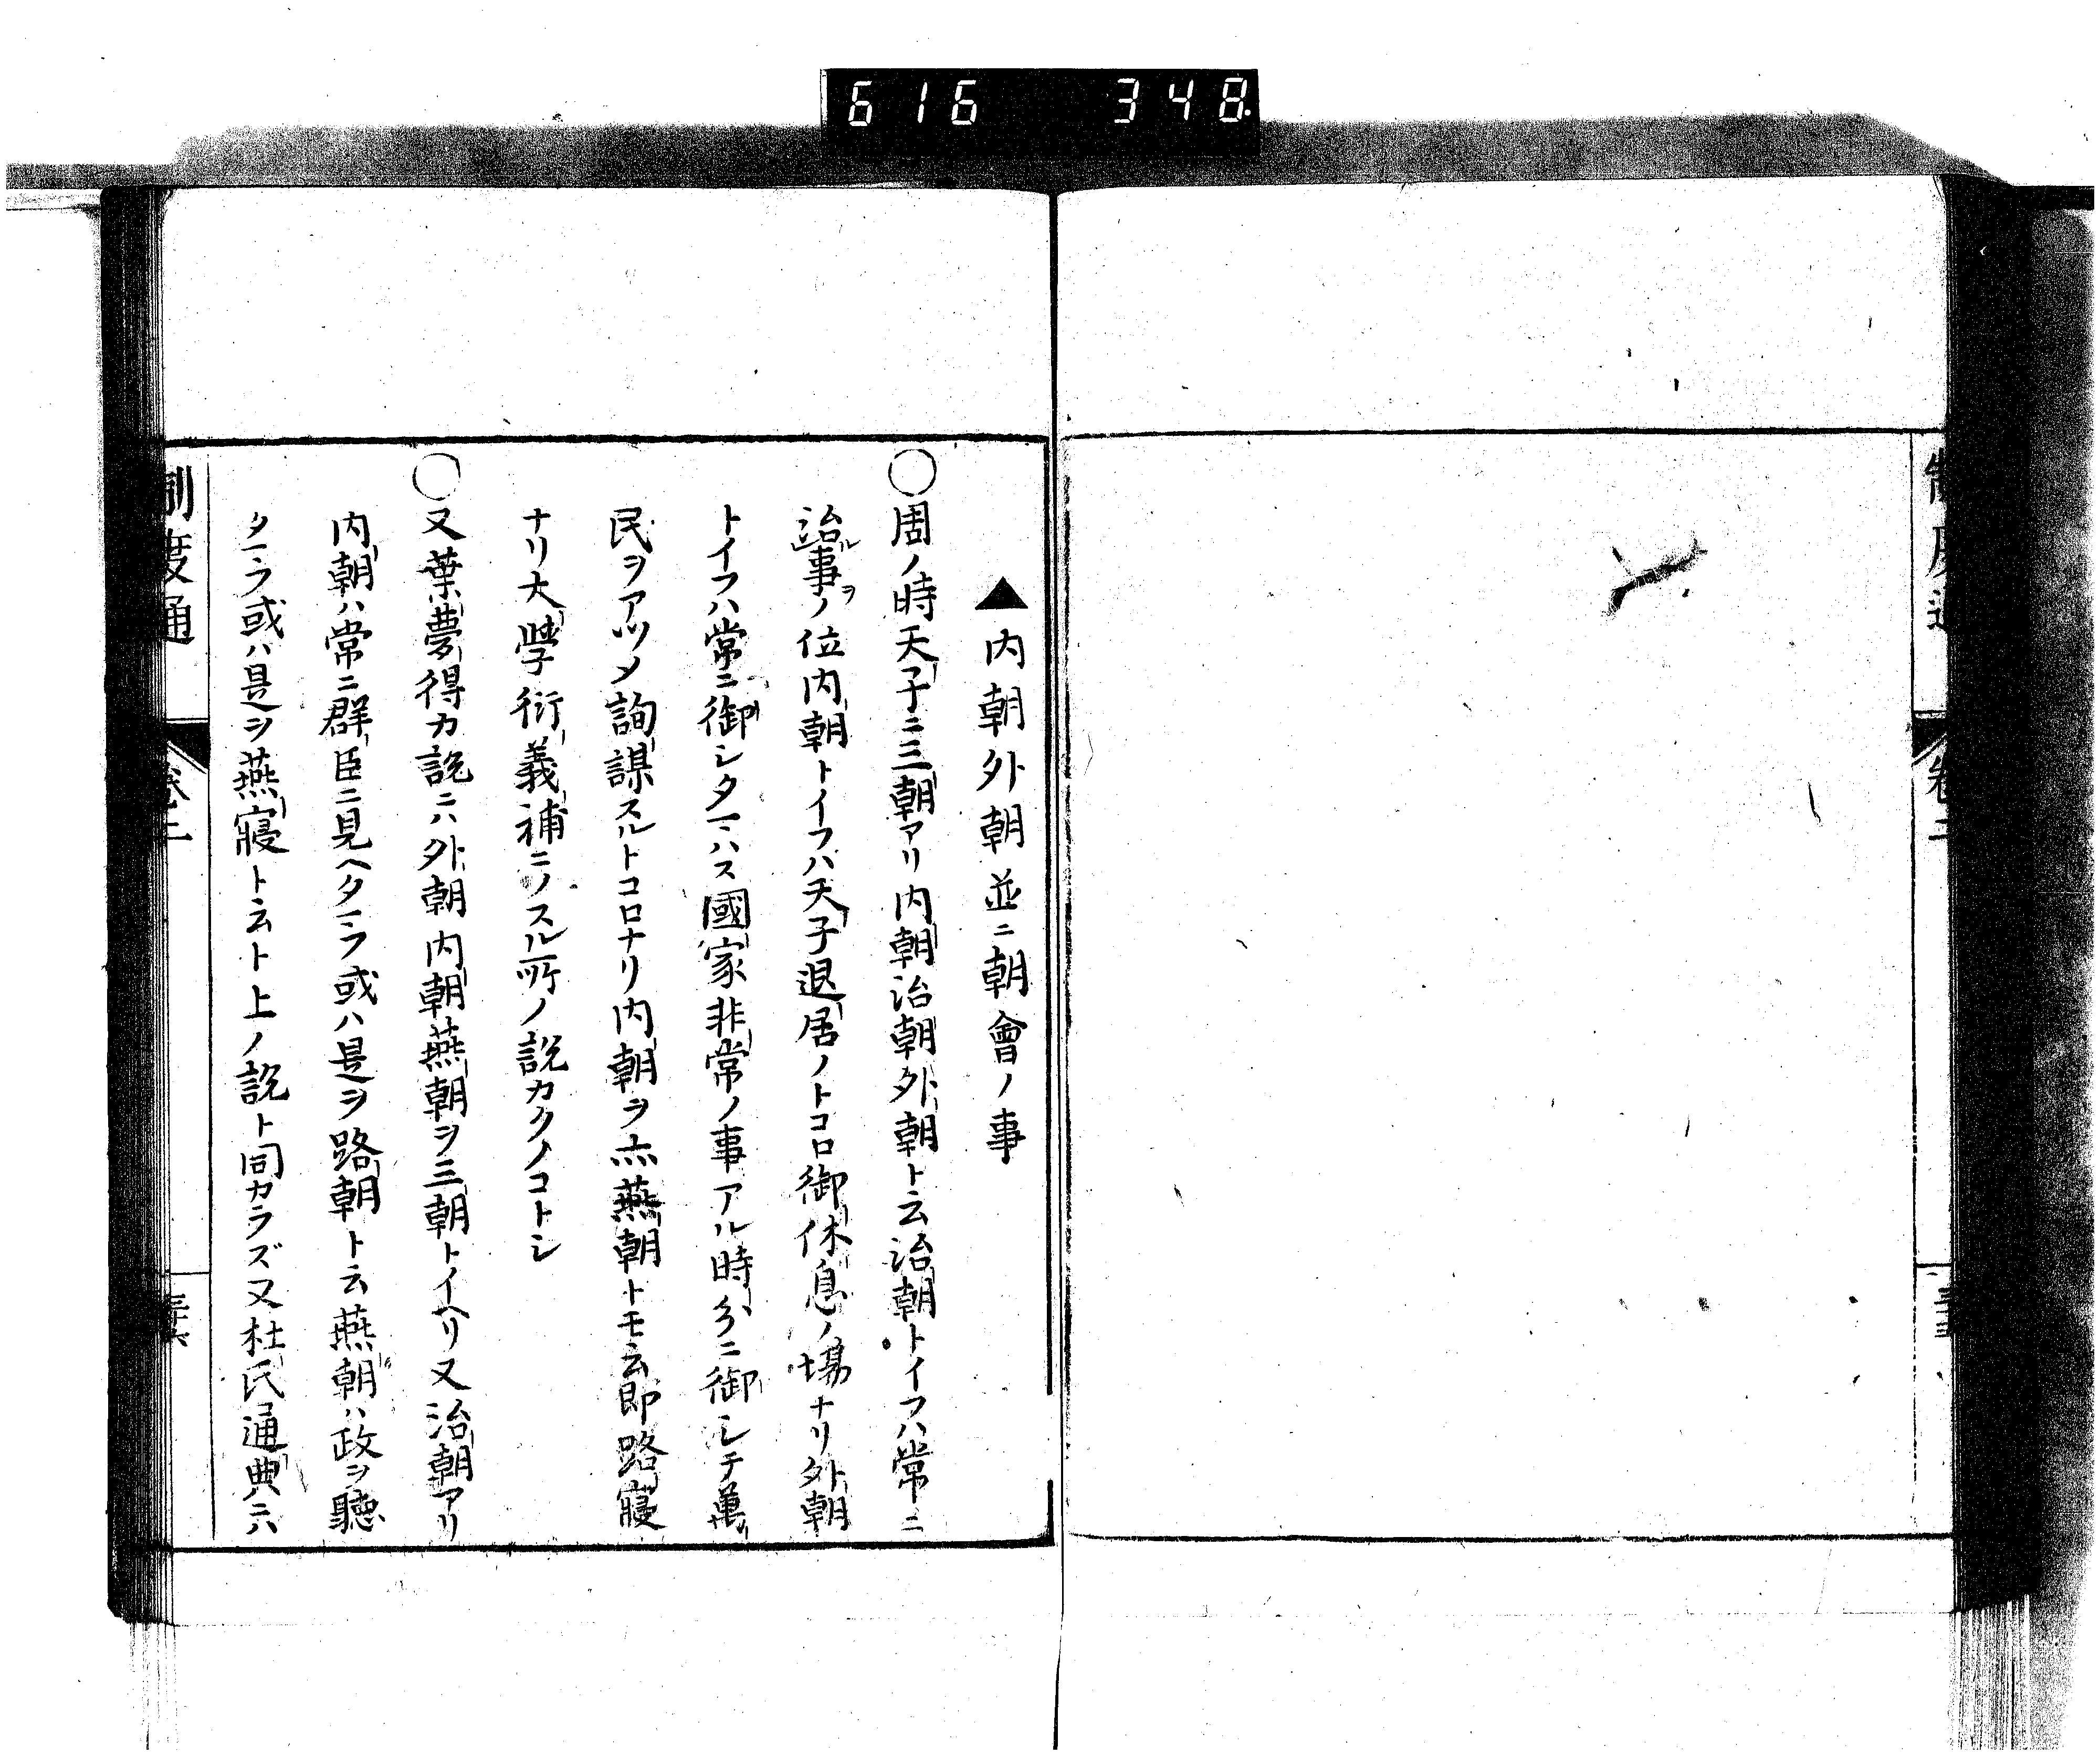 616 348
▲内朝外朝並ニ朝會ノ事
○周ノ時天子ニ三朝アリ内朝治朝外朝ト云治朝トイフハ常ニ
治ルヲ事ノ位内朝トイフハ天子退居ノトコロ御休息ノ場ナリ外朝
トイフハ常ニ御シタマハス國家非常ノ事アル時分ニ御シテ萬
民ヲアツメ詢謀スルトコロナリ内朝ヲ亦燕朝トモ云即路寢
ナリ大學衍義補ニノスル所ノ說カクノコトシ
○又葉夢得カ說ニハ外朝内朝燕朝ヲ三朝トイヘリ又治朝アリ
内朝ハ常ニ群臣ニ見ヘタマフ或ハ是ヲ路朝ト云燕朝ハ政ヲ聽
タマフ或ハ是ヲ燕寢ト云ト上ノ說ト同カラズ又杜氏通典ニハ
制度通